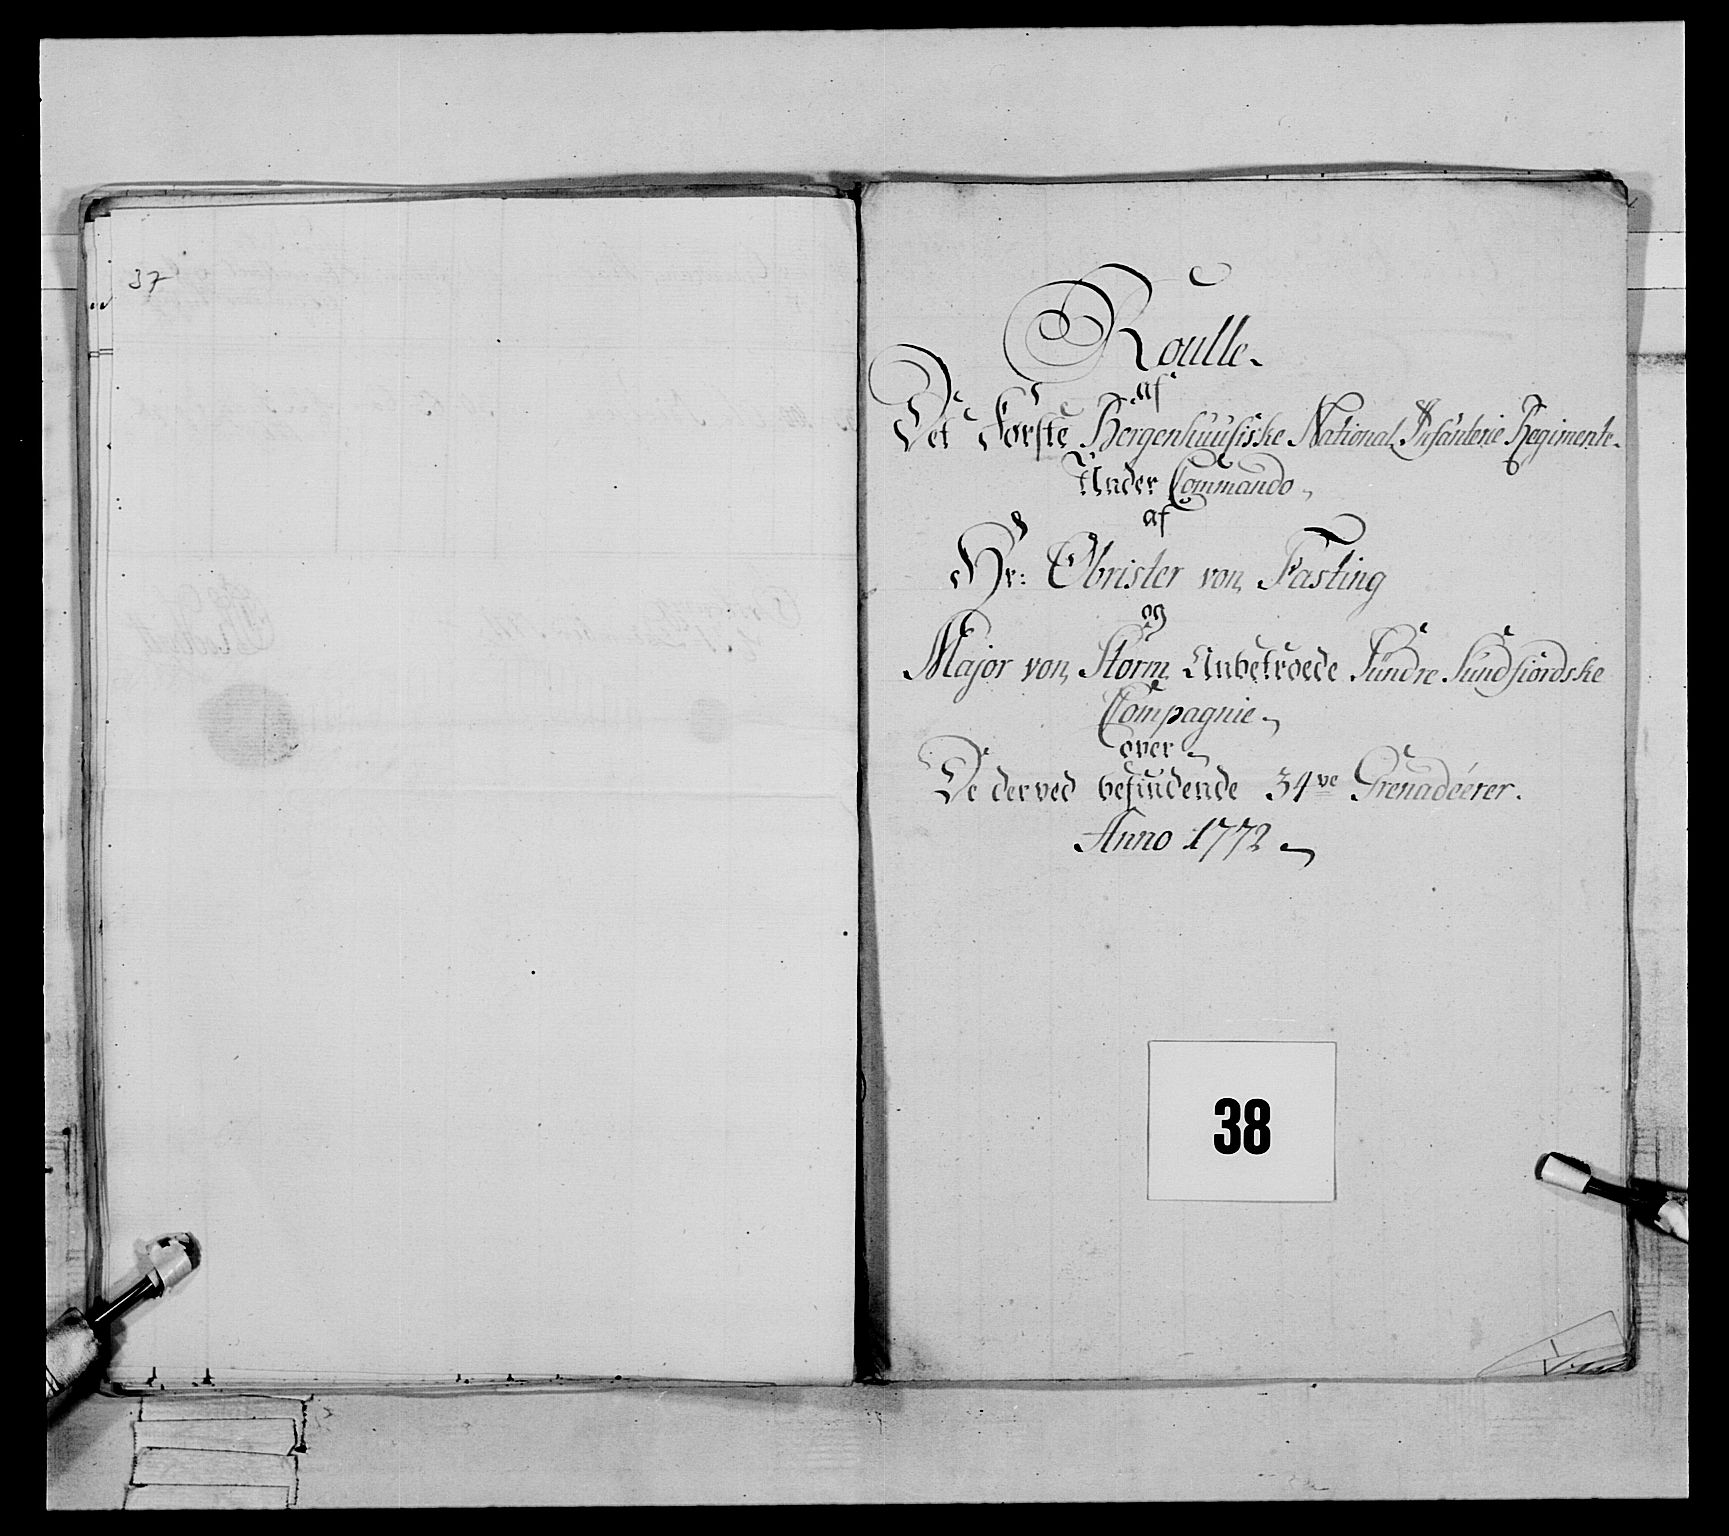 37
Roulle
af
Det Første Bergenhuusiske National Infanterie Regimente
Under Commando
af
Hr: Obrister von Fasting
og
Major von Storm Anbetroede Søndre Sundfiordske
Compagnie
over
De derved befindende 34ve Grenadéerer.
Anno 1772
38